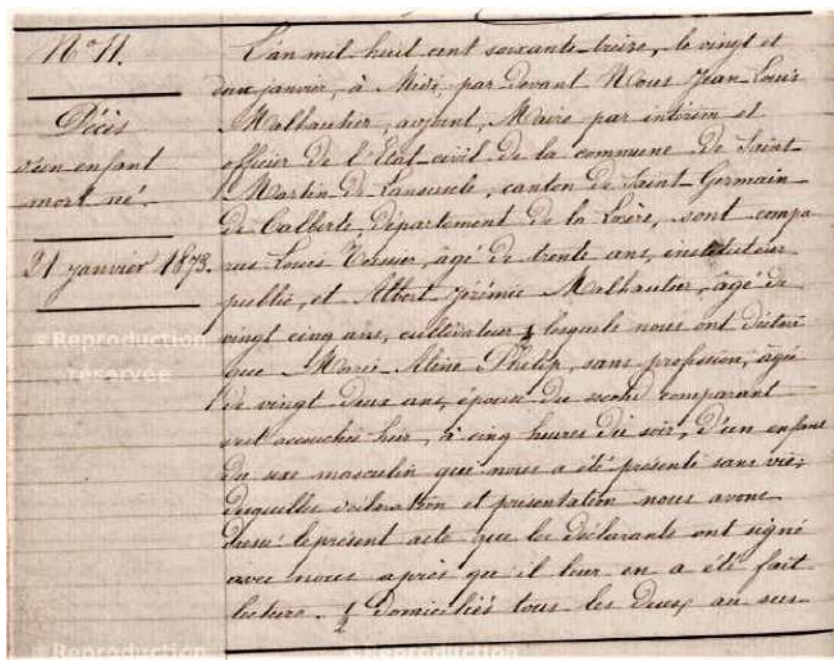 N° 11.
Décès
d'un enfant
mort né.
21 janvier 1873.
L'an mil huit cent soixante treize, le vingt et
deux janvier, à Midi, par devant Nous Jean Louis
Malhautier, adjoint, Maire par intérim et
officier de l'Etat-civil de la commune de Saint
Martin de Lansuscle, canton de Saint Germain
de Calberte, département de la Lozère, sont compa
rus Louis âgé de trente ans, instituteur
public, et Albert Jérémie Malhautier, âgé de
vingt cinq ans, cultivateur lesquels nous ont déclaré
que Marie Philip, sans profession, âgée
de vingt deux ans, épouse du second comparant
est accouchée hier, à cinq heures du soir, d'un enfant
du sexe masculin qui nous a été présenté sans vie;
desquelles déclaration et présentation nous avons
dressé le présent acte que les déclarants ont signé
avec nous après qu'il leur en a été fait
lecture. domiciliés tous les deux au sus
©Reproduction
réservée
©Reproduction
©Reproduction